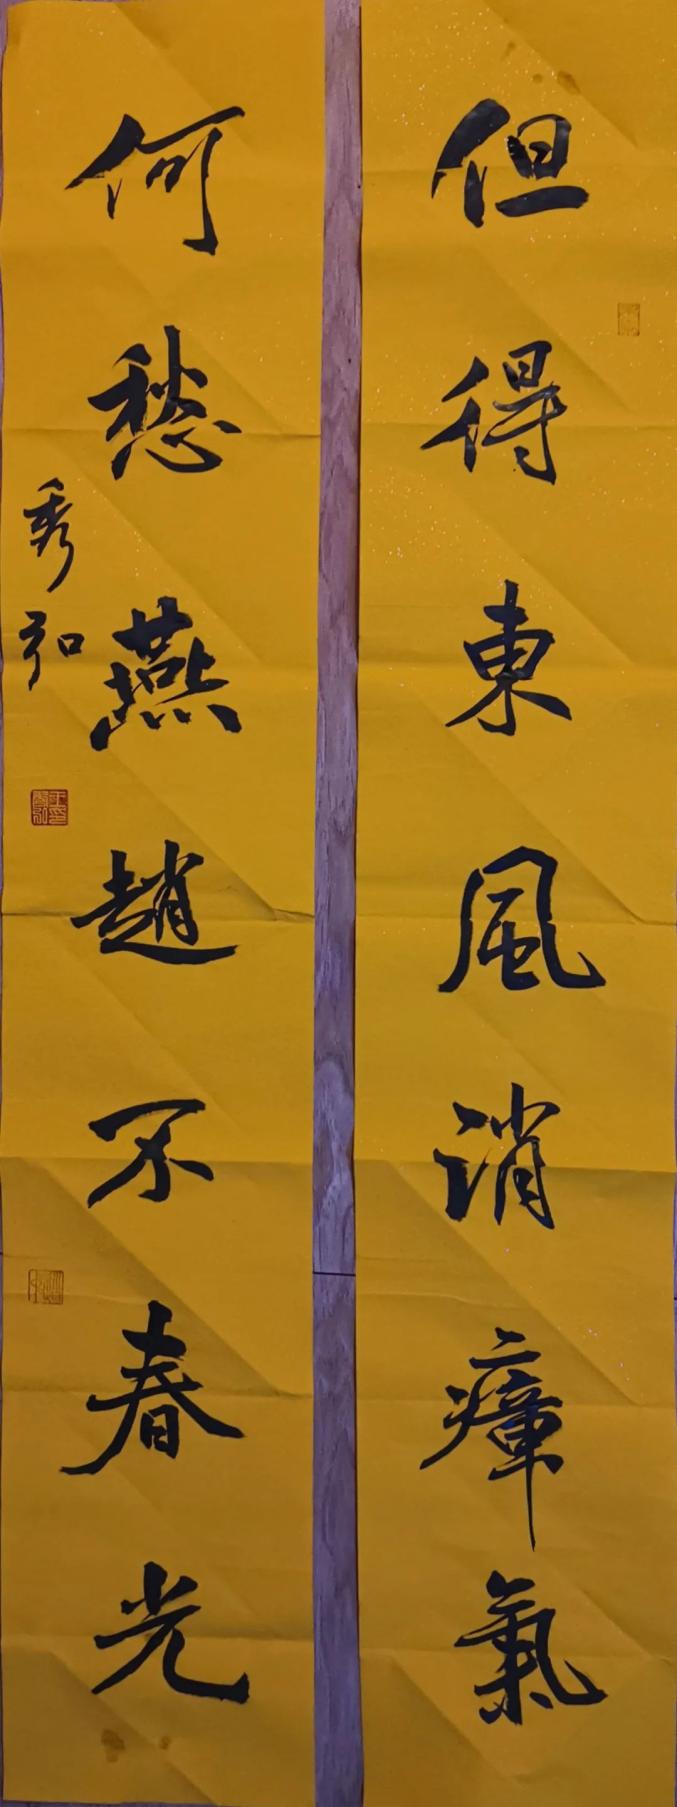 但得東風消瘴氣
何愁燕趙不春光
秀弘